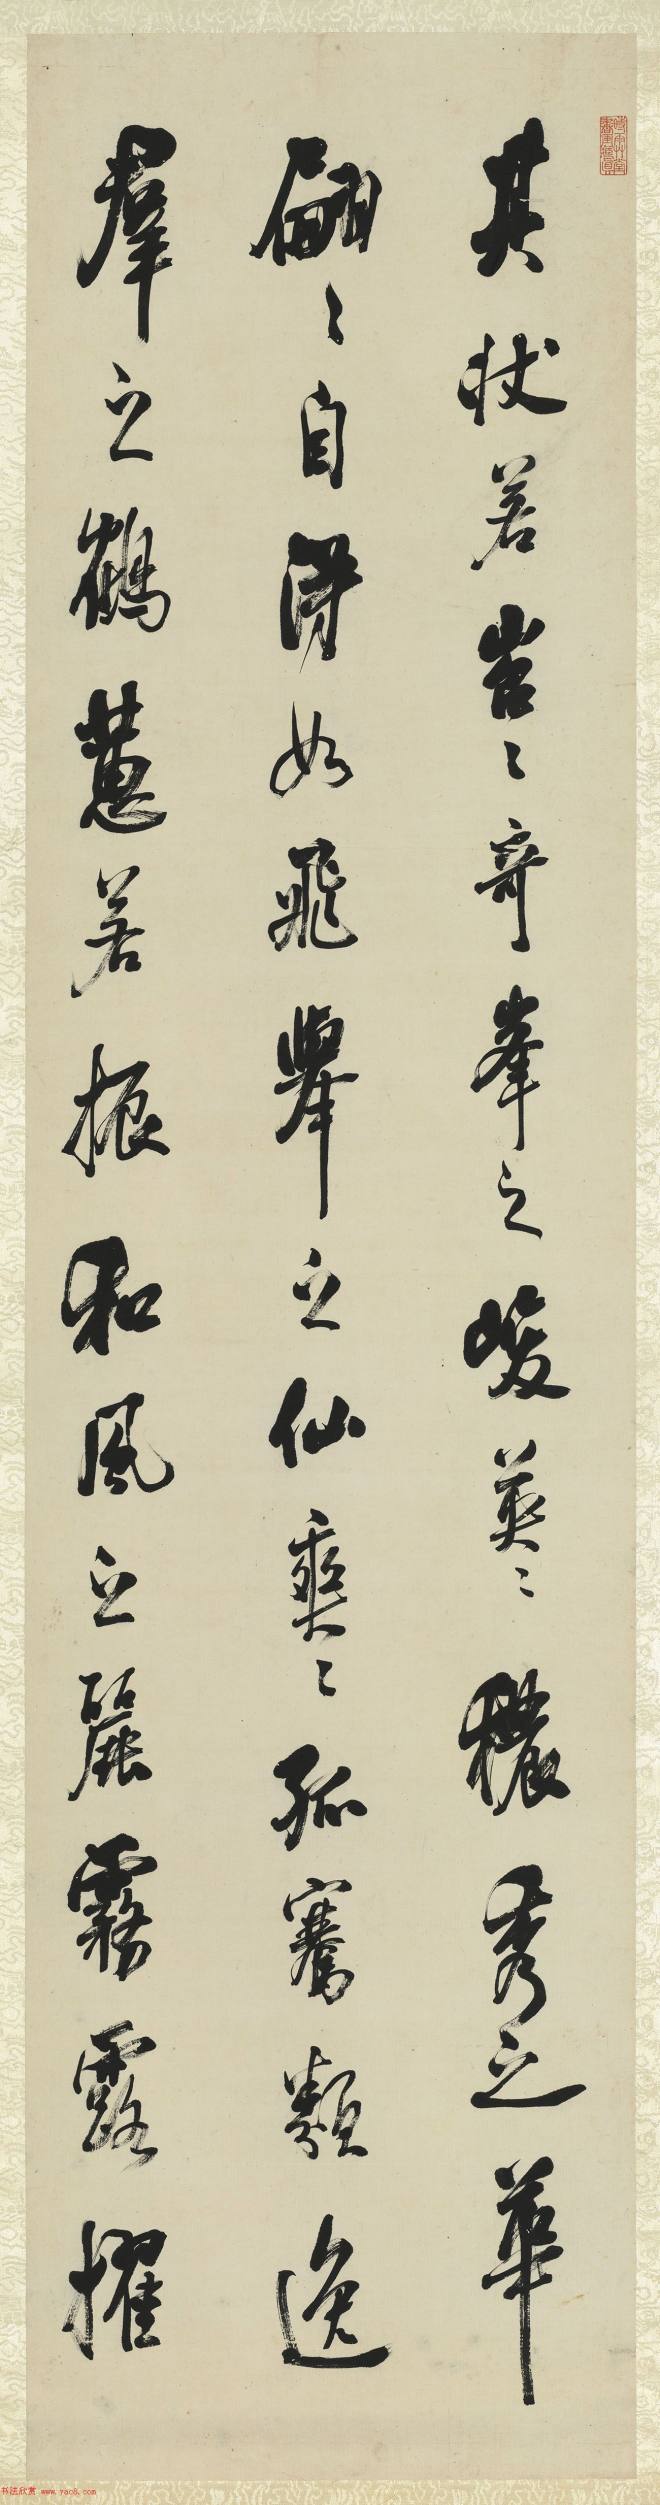 其狀若岧〻奇峯之峻英〻穠秀之華
翩〻自得如飛舉之仙奭〻孤騫類逸
羣之鶴蕙若振和風之麗霧露擢
书法欣赏 www.yac8.com